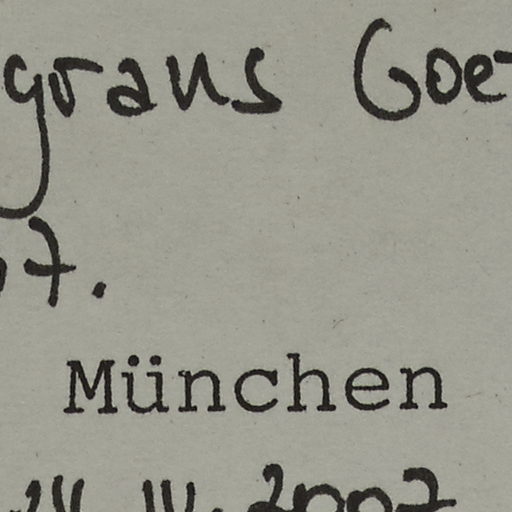 graus Goe
7.
München
IV. 2007